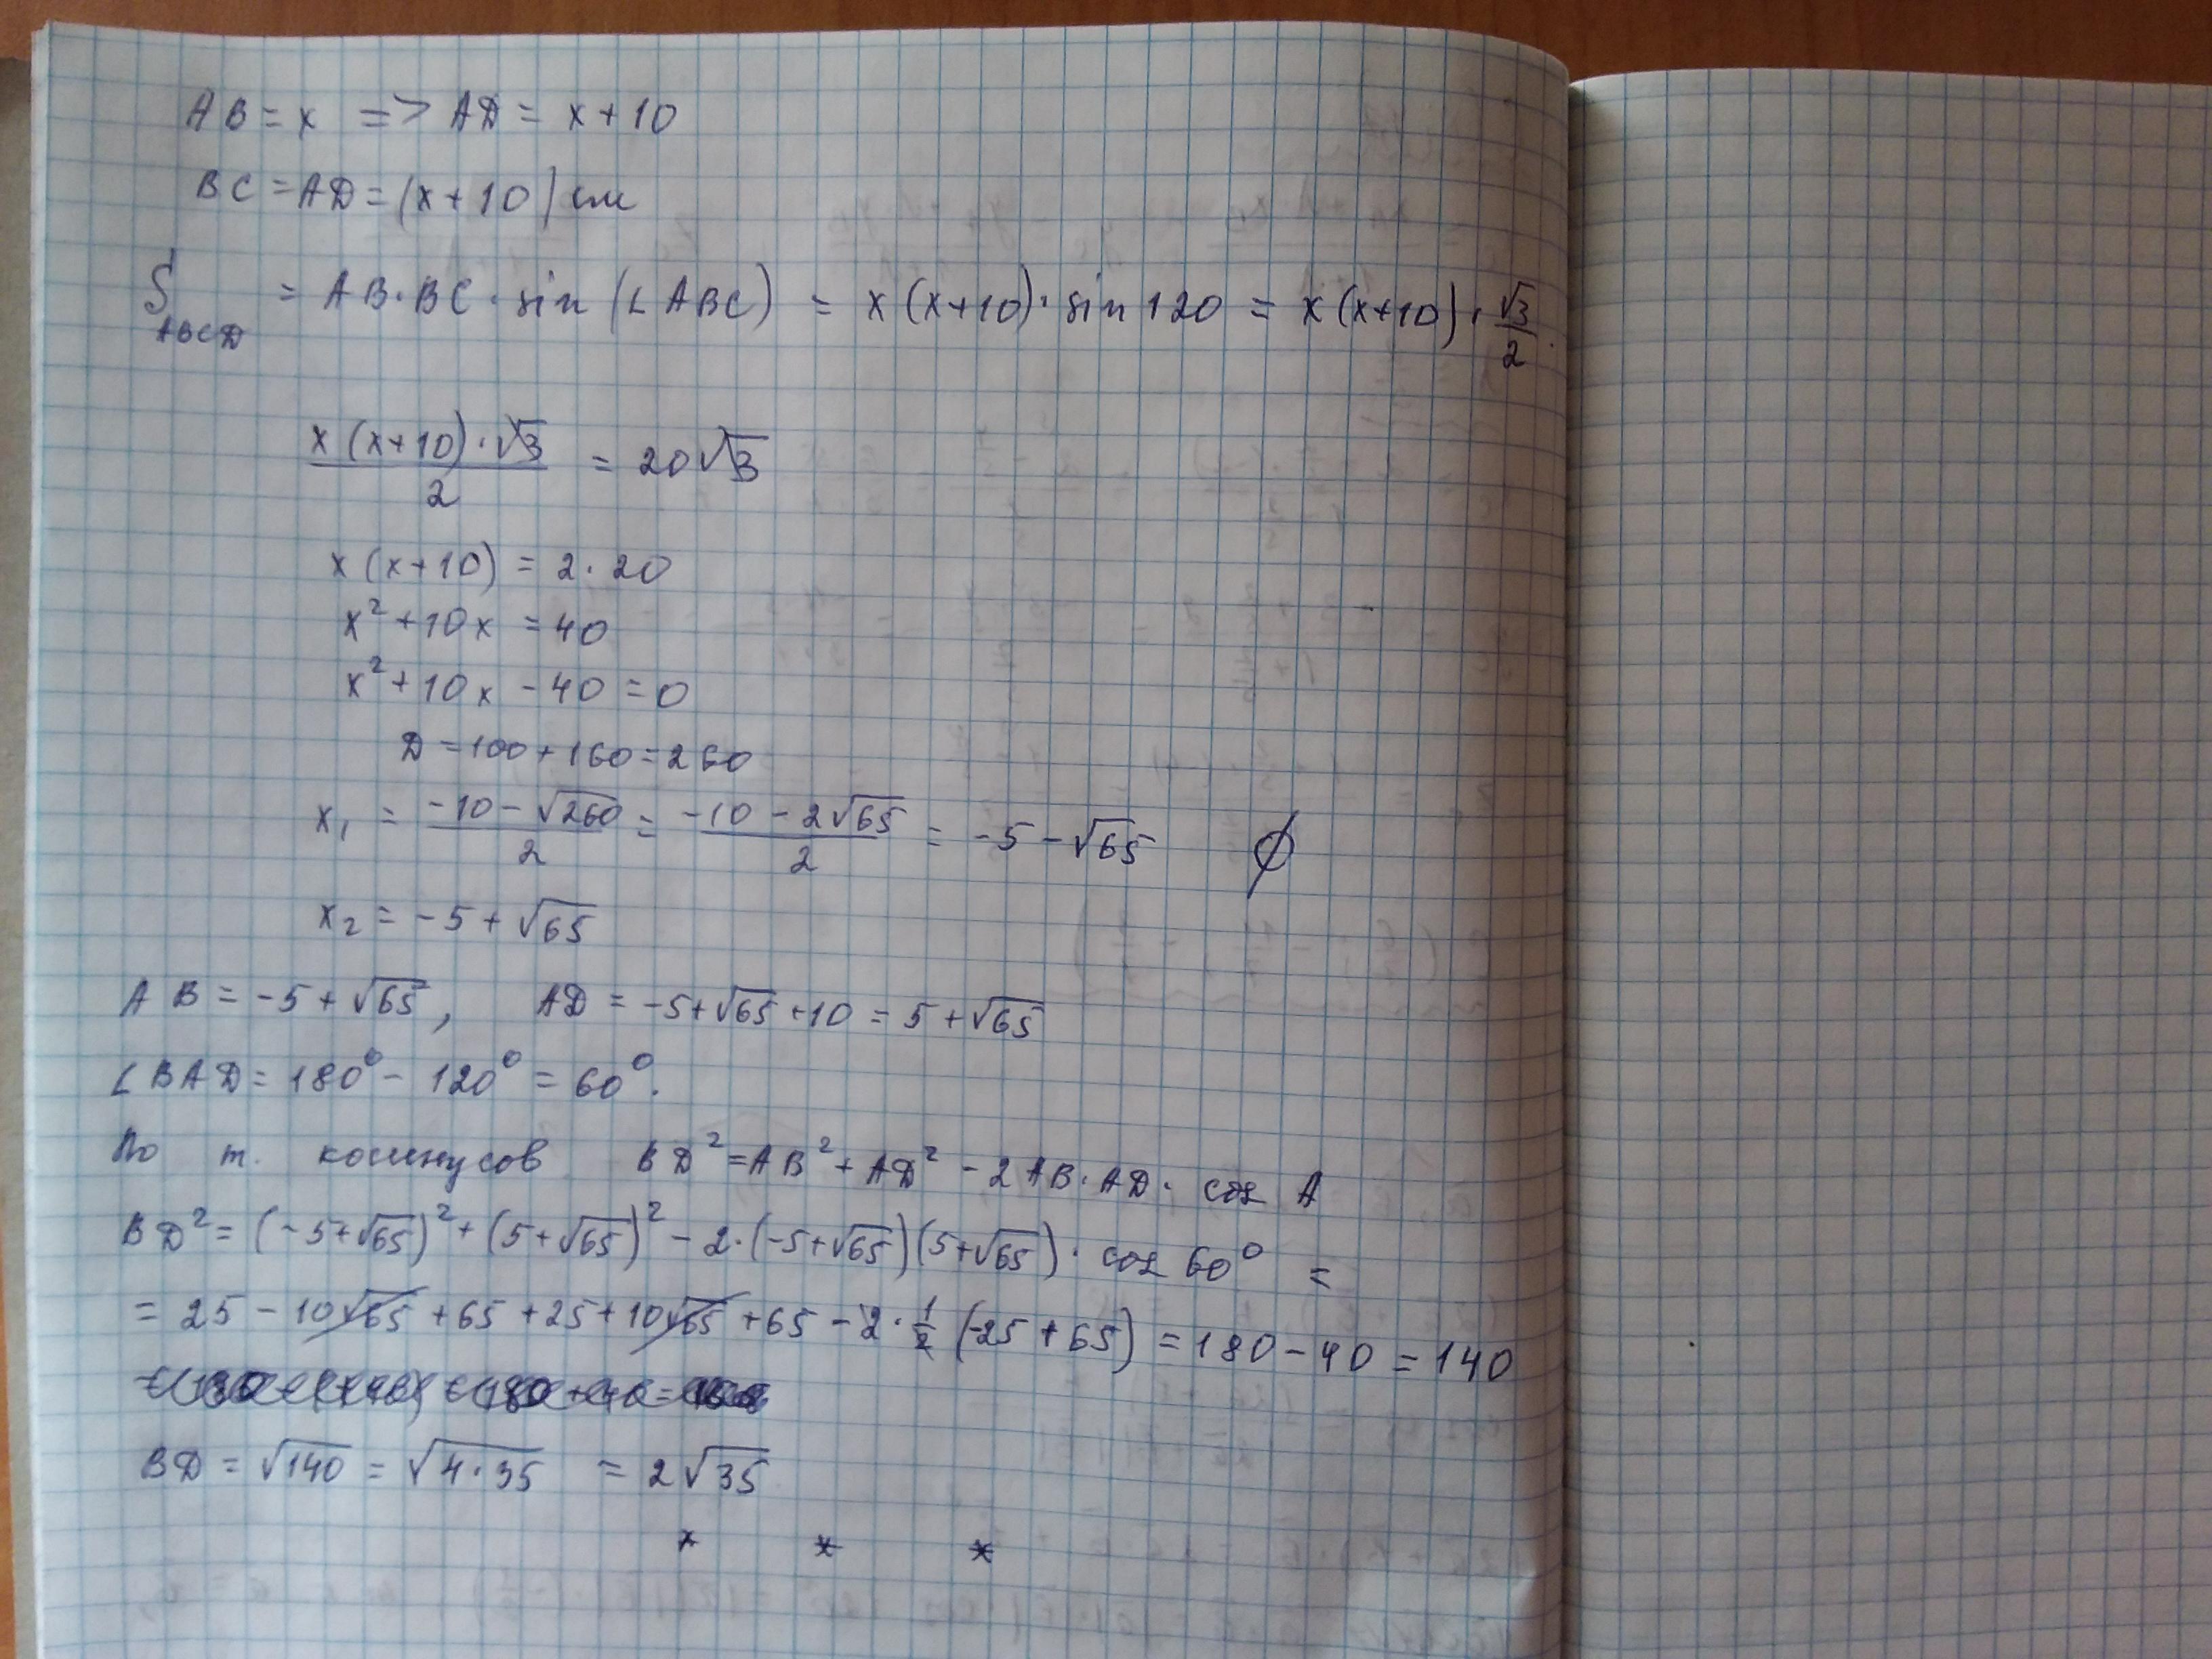 AB = x => AD = x + 10
BC = AD = (x + 10) см
S ABCD = AB · BC · sin (∠ ABC) = x (x+10) · sin 120 = x (x+10) · √3/2
x (x+10) · √3 / 2 = 20√3
x (x+10) = 2 · 20
x² + 10x = 40
x² + 10x - 40 = 0
D = 100 + 160 = 260
x₁ = (-10 - √260)/2 = (-10 - 2√65)/2 = -5 - √65 ∅
x₂ = -5 + √65
AB = -5 + √65, AD = -5 + √65 + 10 = 5 + √65
∠ BAD = 180° - 120° = 60°.
По т. косинусов BD² = AB² + AD² - 2 AB · AD · cos A
BD² = (-5+√65)² + (5+√65)² - 2 · (-5+√65)(5+√65) · cos 60° =
= 25 - 10√65 + 65 + 25 + 10√65 + 65 - 2 · 1/2 (-25 + 65) = 180 - 40 = 140
BD = √140 = √4·35 = 2√35
* * *